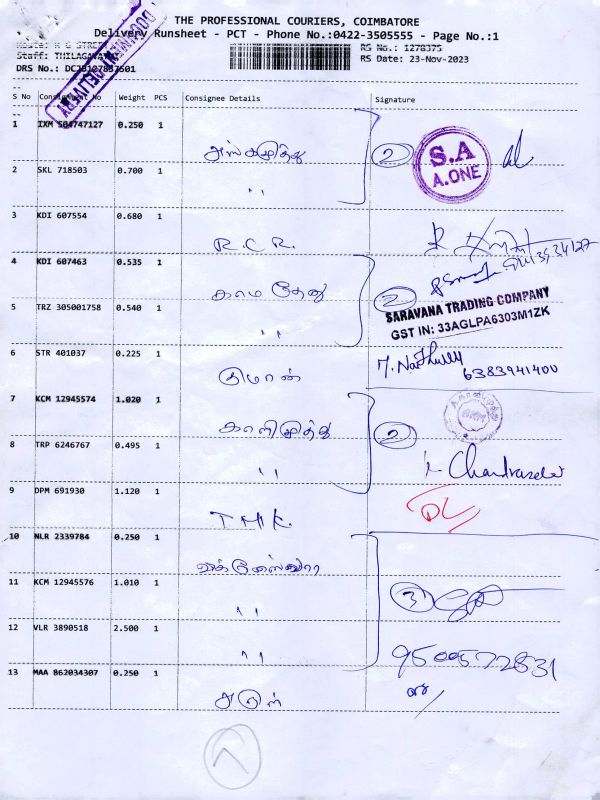 THE PROFESSIONAL COURIERS, COIMBATORE
Delivery Runsheet - PCT - Phone No.:0422-3505555 - Page No.:1
RS No.: 1278375
Staff: THILAGAVA
RS Date: 23-Nov-2023
DRS No.:
DELIVERY
S No Consignment No Weight PCS Consignee Details Signature
1 IXM 504747127 0.250 1
2 S.A
A.ONE
2 SKL 718503 0.700 1 ,,
3 KDI 607554 0.680 1 R.C.R.
4 KDI 607463 0.535 1 காமதேனு 2
SARAVANA TRADING COMPANY
GST IN: 33AGLPA6303M1ZK
5 TRZ 305001758 0.540 1 ,,
6 STR 401037 0.225 1 குமரன்
6383941400
7 KCM 12945574 1.020 1 காளிமுத்து 2
8 TRP 6246767 0.495 1 ,,
9 DPM 691930 1.120 1 T.M.K.
10 NLR 2339784 0.250 1
11 KCM 12945576 1.010 1 ,, 3
12 VLR 3890518 2.500 1 ,,
9500572831
13 MAA 862034307 0.250 1 அருள்